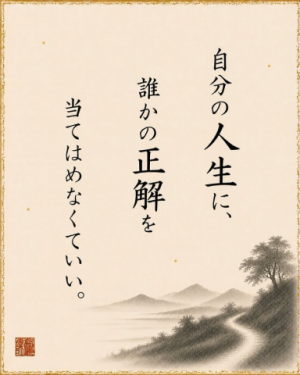 自分の人生に、
誰かの正解を
当てはめなくていい。